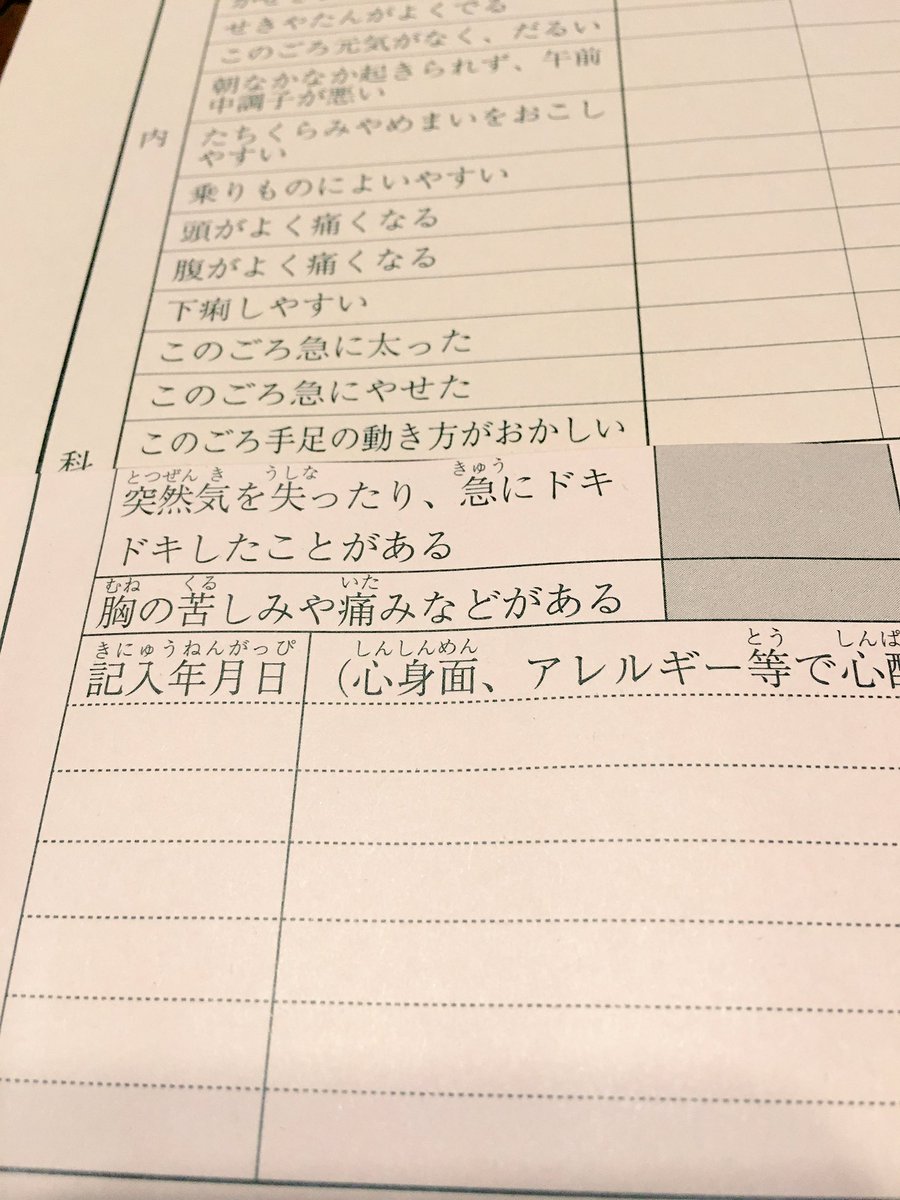 せきやたんがよくでる
このごろ元気がなく、だるい
朝なかなか起きられず、午前
中調子が悪い
たちくらみやめまいをおこし
やすい
乗りものによいやすい
頭がよく痛くなる
腹がよく痛くなる
下痢しやすい
このごろ急に太った
このごろ急にやせた
このごろ手足の動き方がおかしい
内
科
とつぜん き うしな きゅう
突然気を失ったり、急にドキ
ドキしたことがある
むね くる いた
胸の苦しみや痛みなどがある
きにゅうねんがっぴ
記入年月日
しんしんめん とう しんぱ
（心身面、アレルギー等で心配